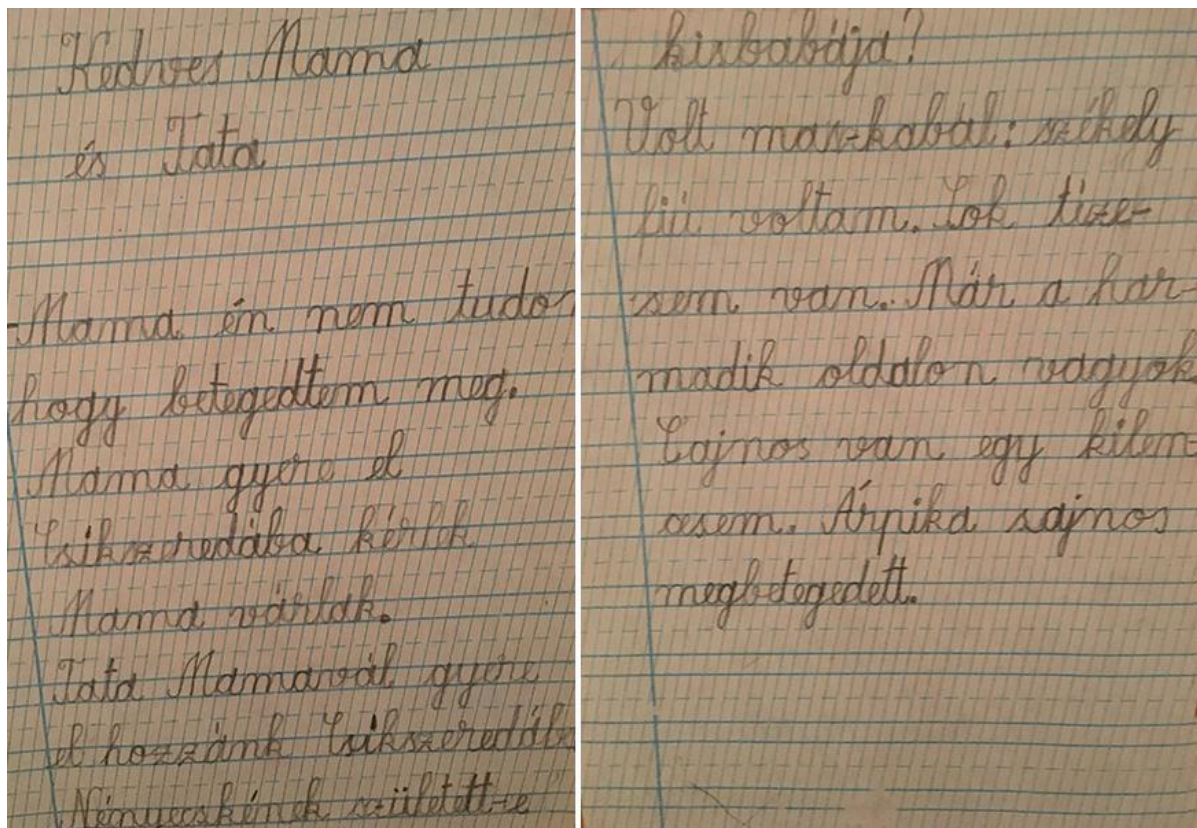 Kedves Mama
és Tata
Mama én nem tudom
hogy betegedtem meg.
Mama gyere el
Csikszeredába kérlek
Mama várlak.
Tata Mamavál gyere
el hozzánk Csikszeredába
Nényecskének született-e
kisbabája?
Volt mas-kabál: székely
fiú voltam. Sok tíze-
sem van. Már a har-
madik oldalon vagyok
Sajnos van egy kilen-
cesem. Árpika sajnos
megbetegedett.